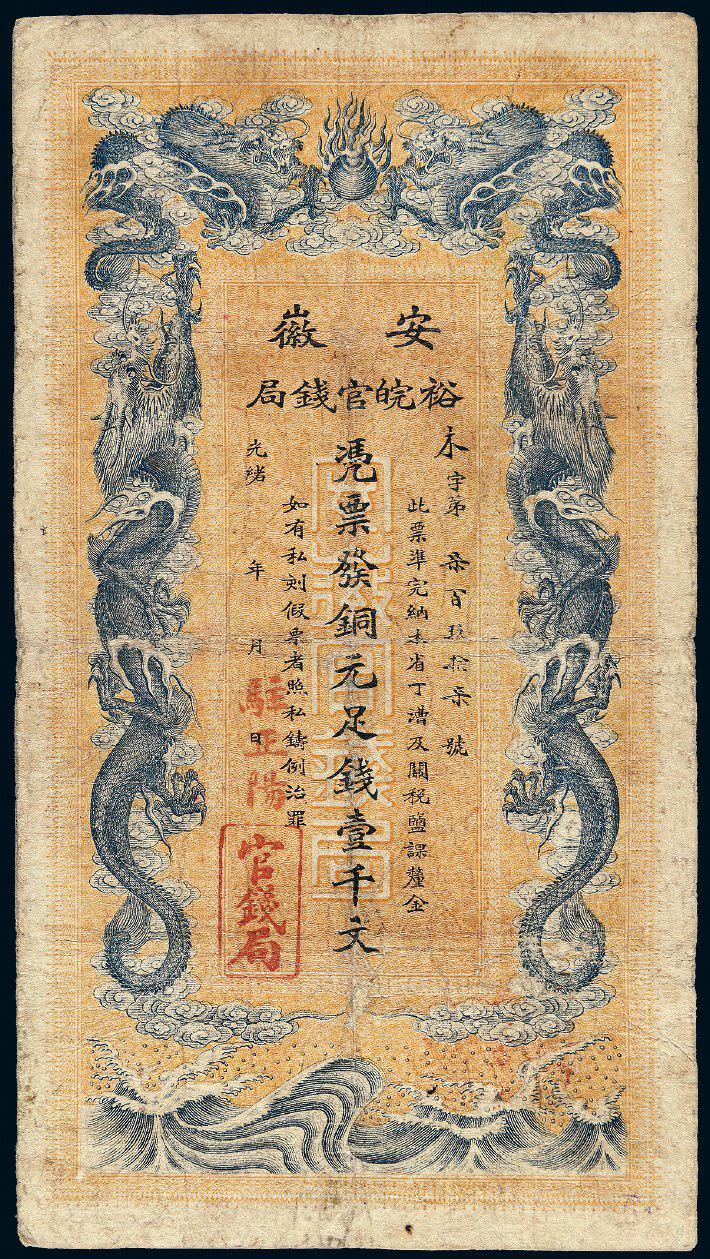 安徽
裕皖官錢局
木字第柒百五拾柒號
此票準完納本省丁漕及關稅鹽課釐金
憑票發銅元足錢壹千文
如有私刻假票者照私鑄例治罪
光緒 年 月 日
駐正陽
官錢局